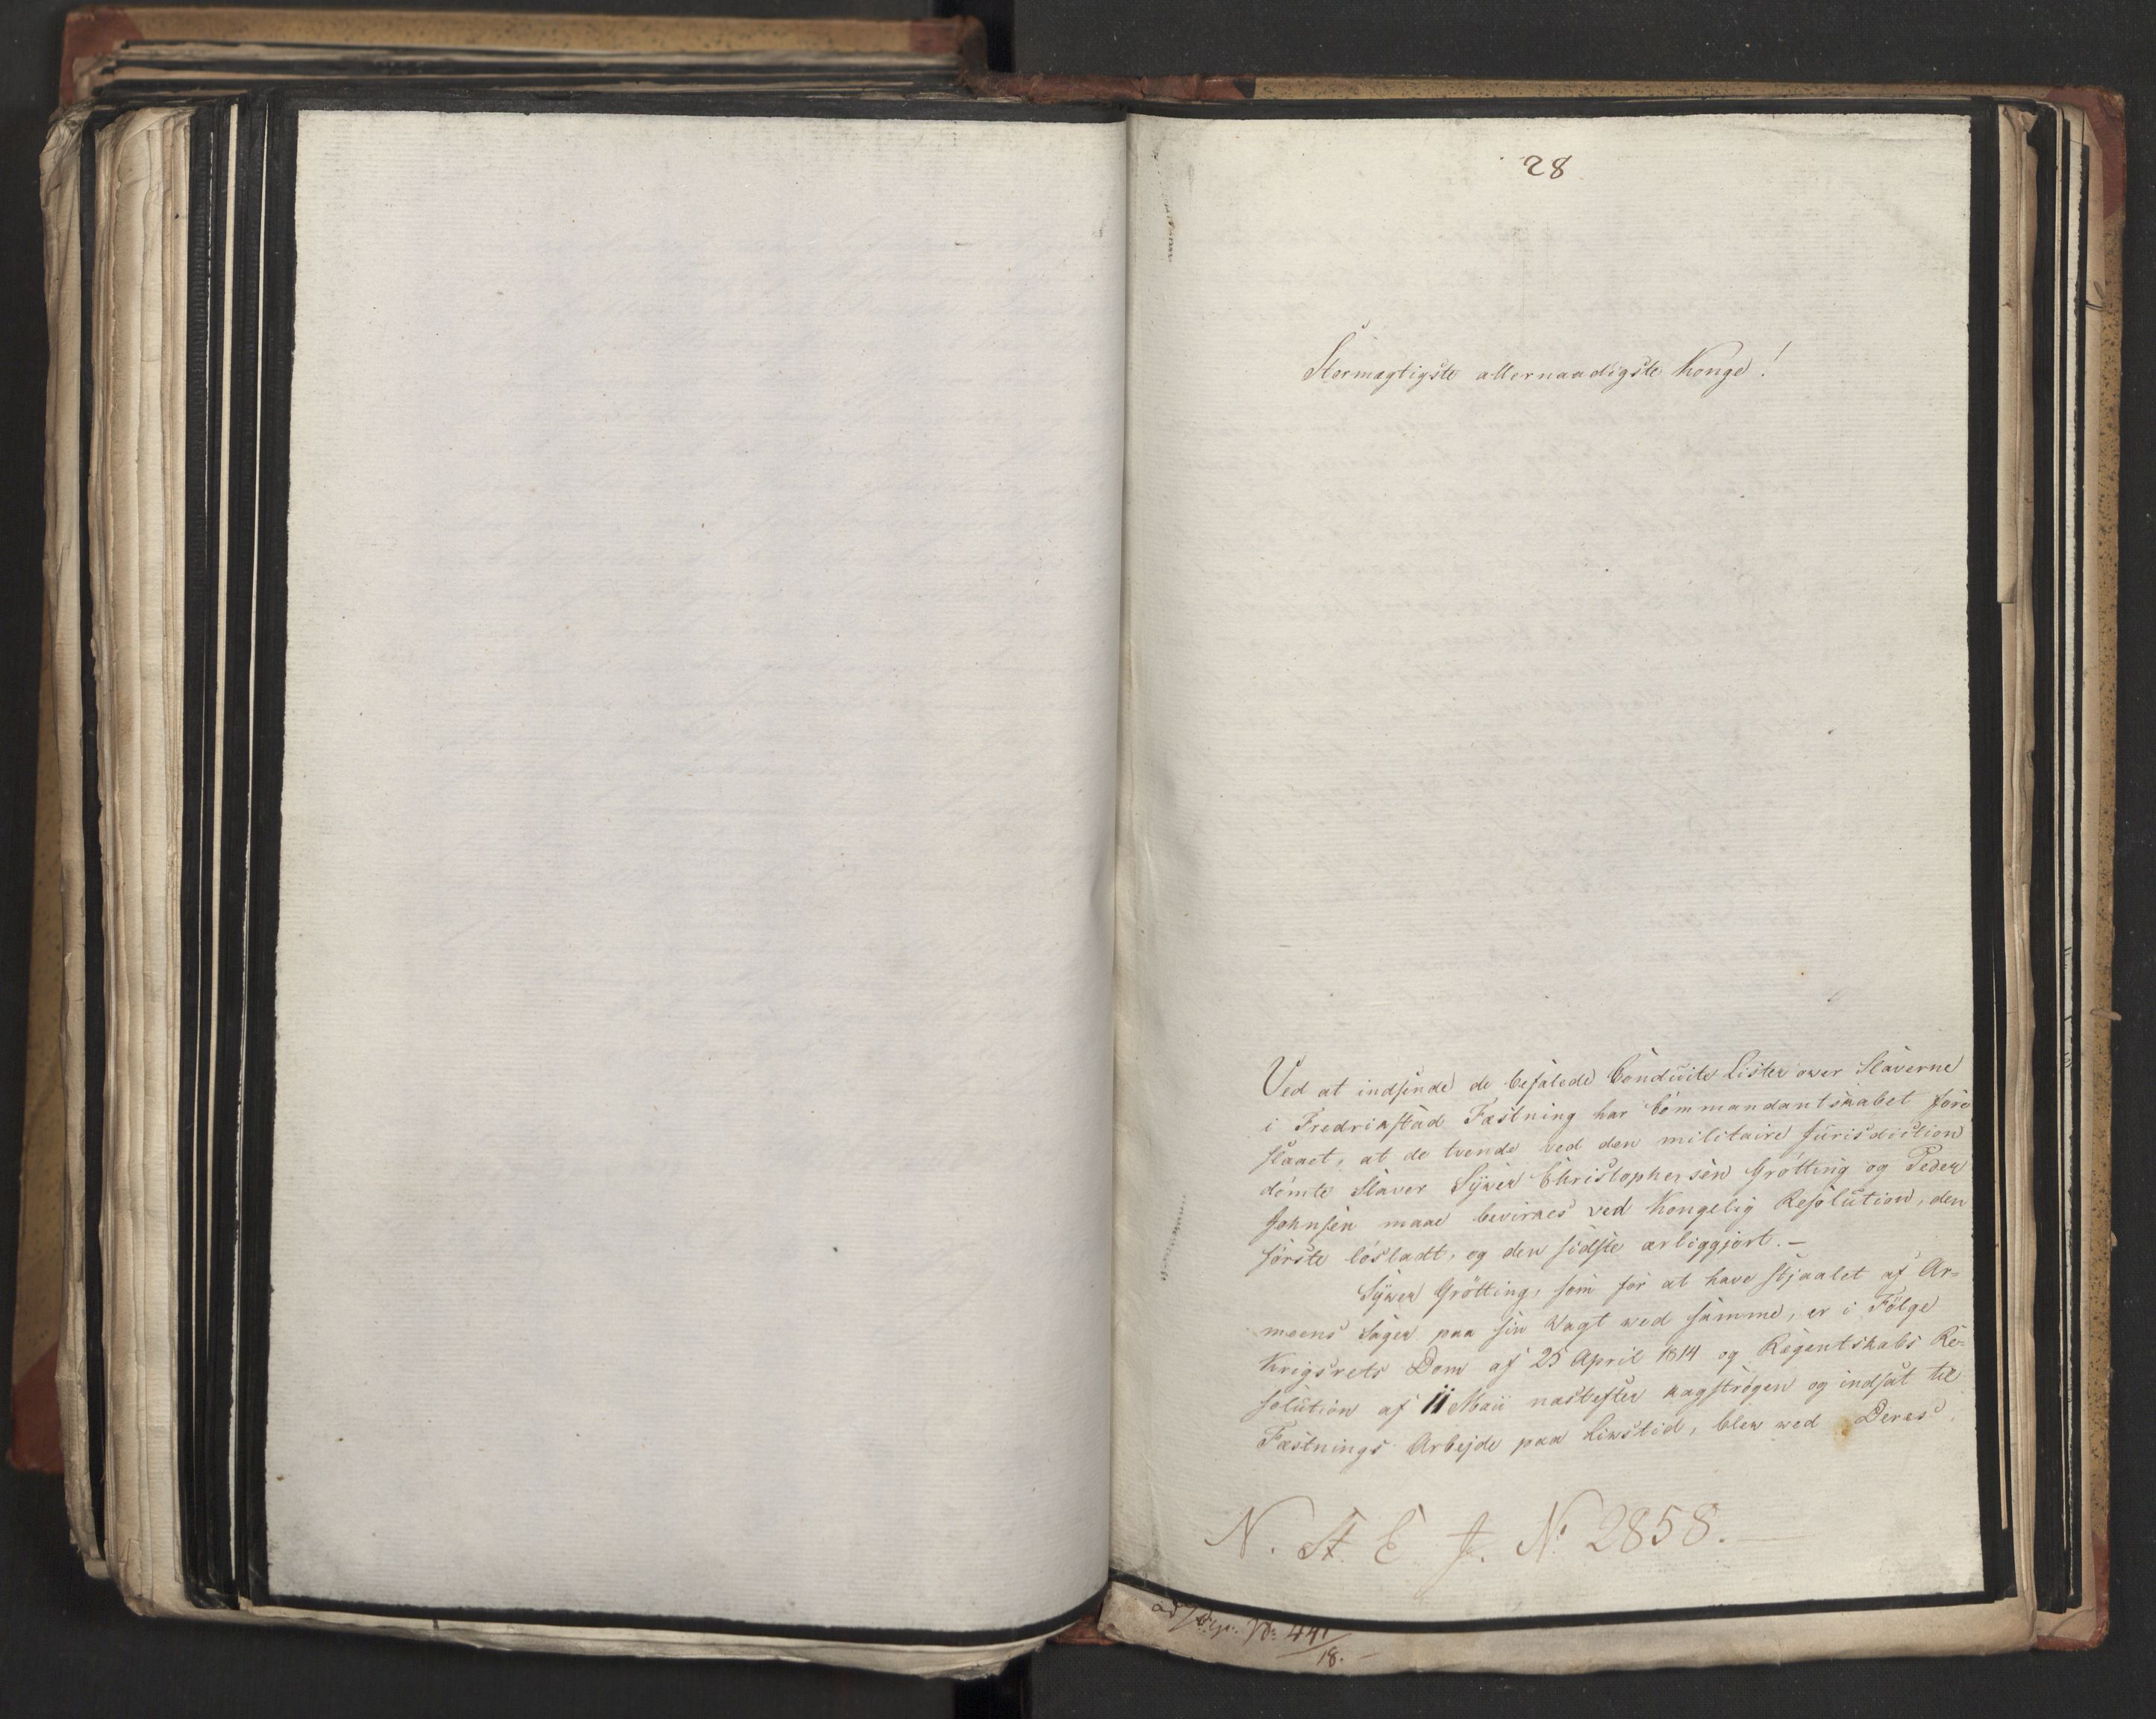 28
Stormægtigste allernaadigste Konge!
Ved at indsende de befalede Conduite Lister over Slaverne
i Fredrikstad Fæstning har Commandantskabet fore
slaaet, at de tvende ved den militaire Jurisdiction
dömte Slaver Syver Christophersen Grötting og Peder
Johnsen maae bevirkes ved Kongelig Resolution, den
förste lösladt, og den sidste ærliggjort. —
Syver Grötting, som for at have stjaalet af Ar-
meens Sager paa sin Vagt ved samme, er i Fölge
Krigsrets Dom af 25 April 1814 og Regentskabs Re-
solution af 11 Maii næstefter kagströgen og indsat til
Fæstnings Arbejde paa Livstid, blev ved Deres
N. St. E. J. No 2858. —
No 441
18. —